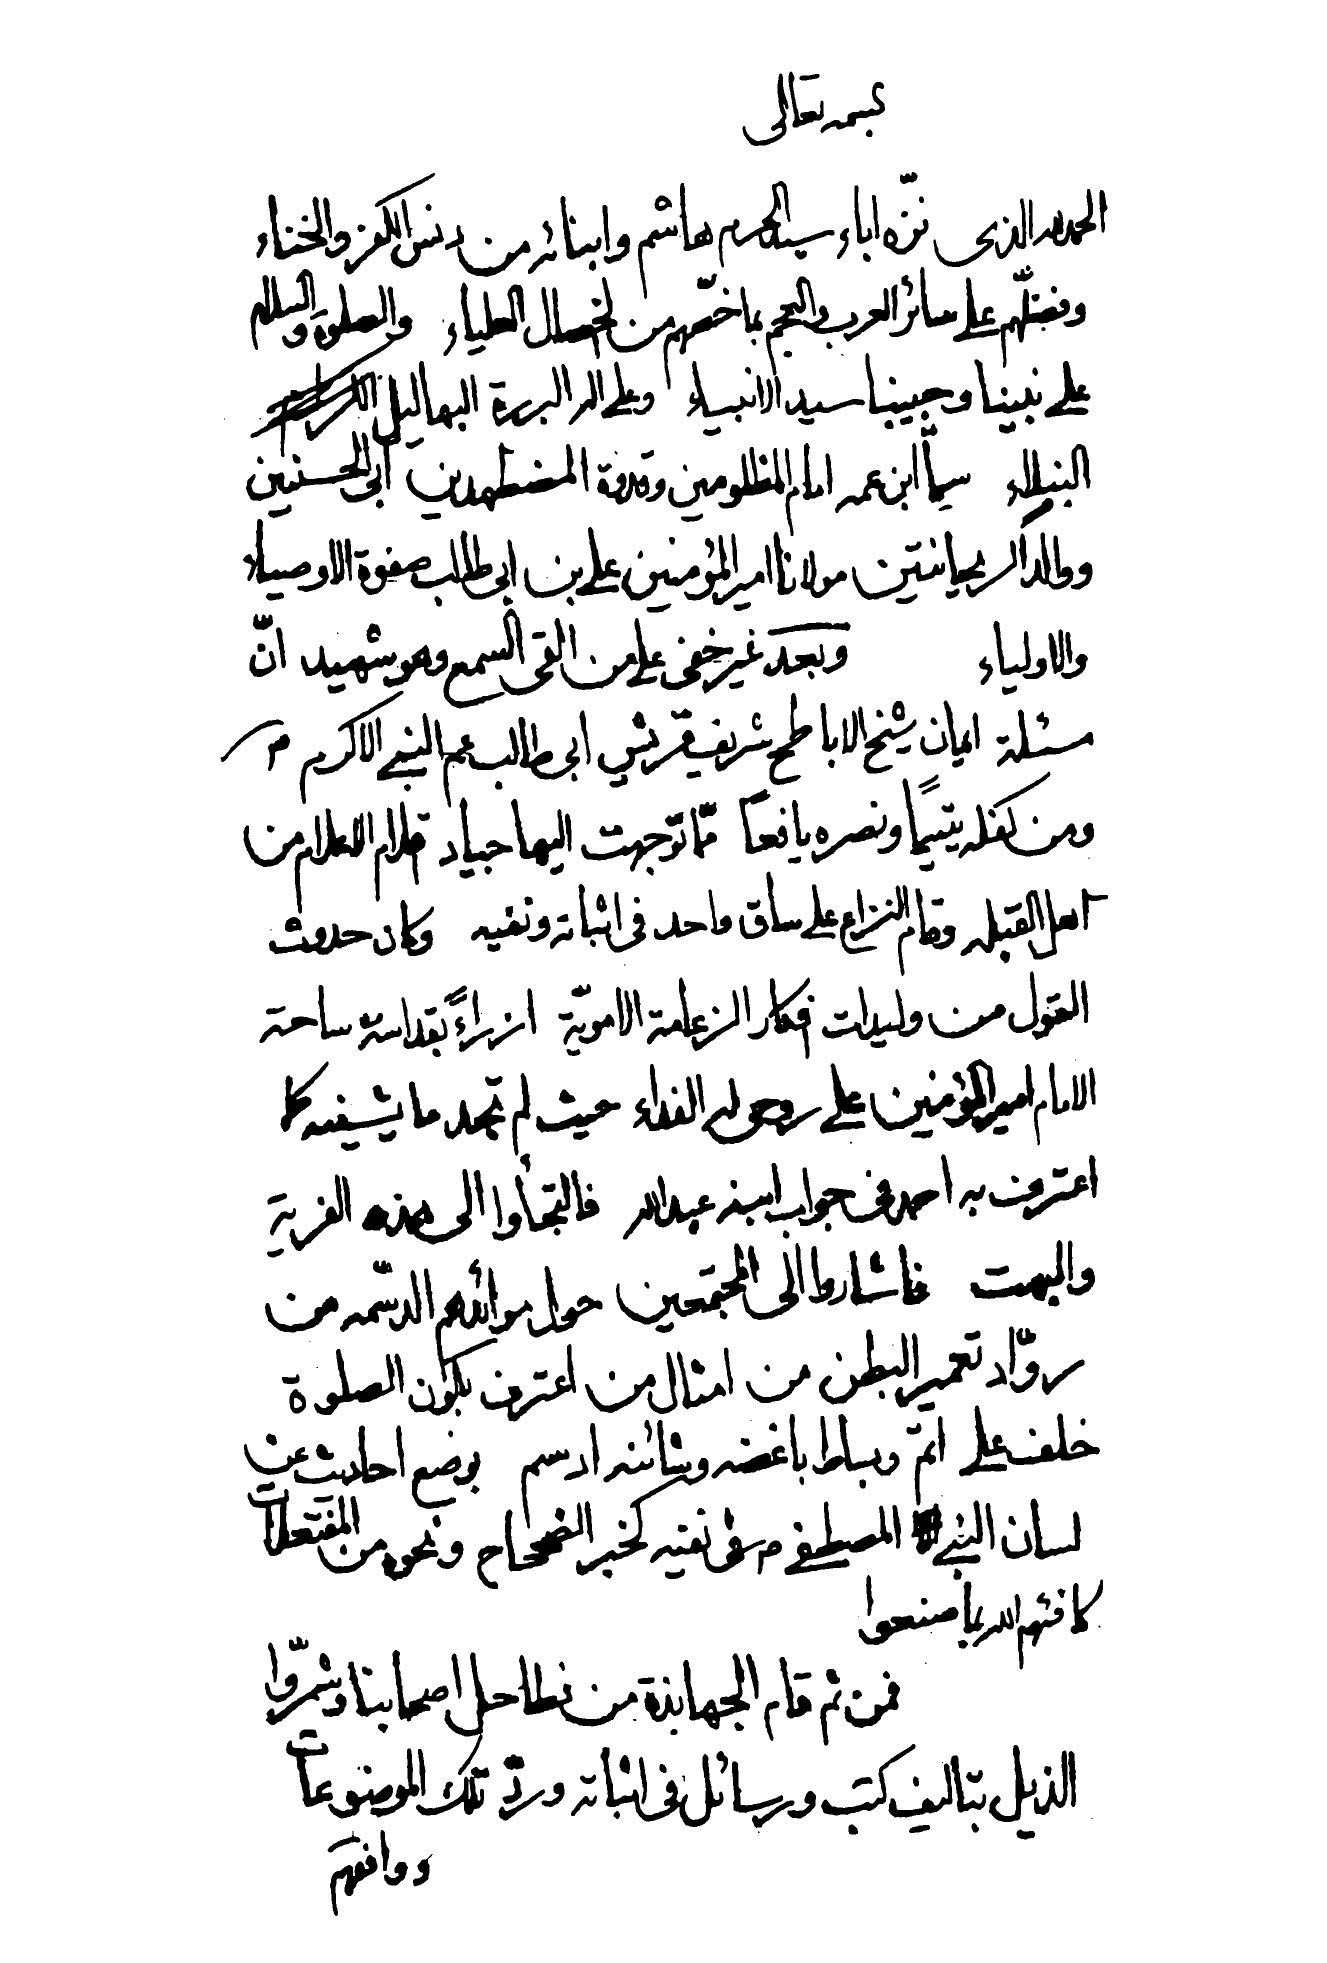 بسمه تعالى
الحمد لله الذى نزّه اباء سيد الحرم هاشم وابنائه من دنس الكفر والخناء
وفضّلهم على سائر العرب والعجم بما خصّهم من الخصال العلياء والصلوة والسلام
على نبينا وحبيبنا سيد الانبياء وعلى اله البررة البهاليل الكرام
النبلاء سيمّا ابن عمه امام المظلومين وقدوة المضطهدين ابى الحسنين
ووالد الريحانتين مولانا امير المؤمنين على بن ابى طالب صفوة الاوصياء
والاولياء وبعد غير خفى على من القى السمع وهو شهيد انّ
مسئلة ايمان شيخ الاباطح شريف قريش ابى طالب عم النبى الاكرم ص
ومن كفله يتيمًا ونصره يافعًا ممّا توجهت اليها جياد اقلام الاعلام من
اهل القبله وقام النزاع على ساق واحد فى اثباته ونفيه وكان حدوث
القول من وليدات افكار الزعامة الامويّة ازراءً بقداسة ساحة
الامام امير المؤمنين على روحى له الفداء حيث لم تجد ما يشينه كما
اعترف به احمد فى جواب ابنه عبدالله فالتجأوا الى هذه الفرية
والبهت فاشاروا الى المجتمعين حول موائدهم الدسّمه من
روّاد تعمير البطن من امثال من اعترف بكون الصلوة
خلف على اتمّ وبساط باغضه وشائنه ادسم بوضع احاديث عن
لسان النبى المصطفى ص فى نفيه كخبر الضحضاح ونحوه من المفتعلات
كافئهم الله بما صنعوا
فمن ثم قام الجهابذة من نطاحل اصحابنا وشمرّوا
الذيل بتاليف كتب ورسائل فى اثباته وردّ تلك الموضوعات
ووافقهم